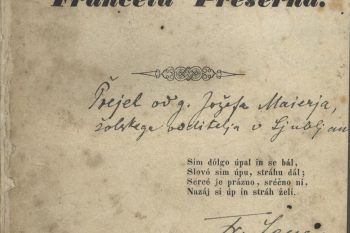 Franceta Prešerna.
Přejel od g. Jožefa Maierja,
šolskega voditelja v Ljubljani
Sim dólgo úpal in se bál,
Slovó sim úpu, stráhu dál;
Sercé je prázno, sréčno ni,
Nazáj si úp in stráh želí.
Fr.